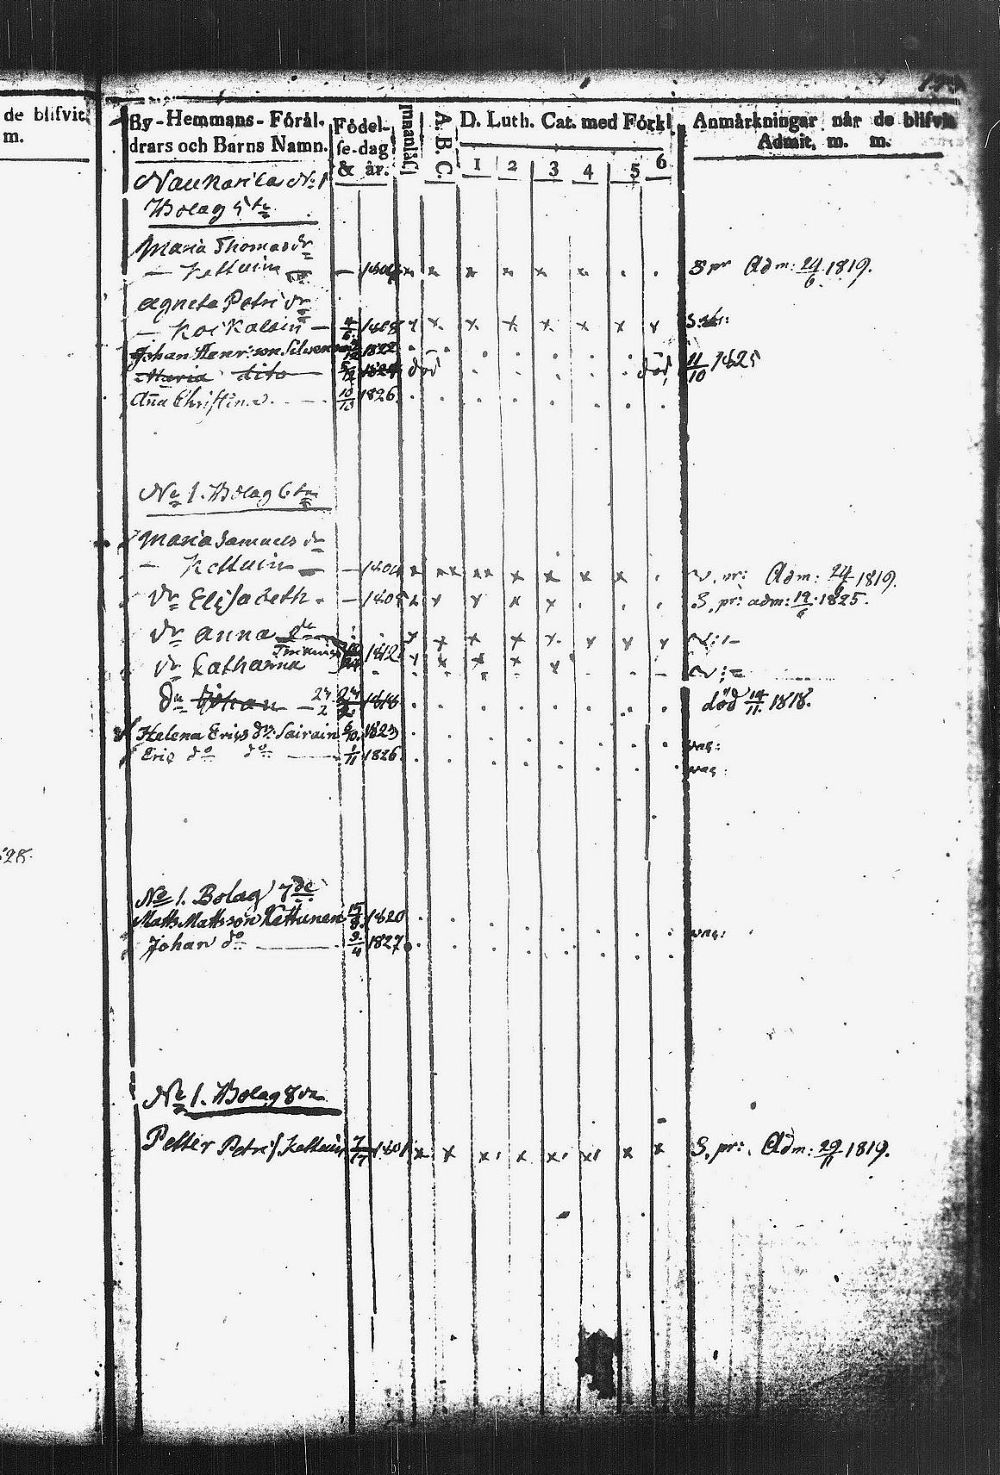 de blifvit
m.
By-Hemmans-Föräl-
drars och Barns Namn.
Födel-
se-dag
& år.
Innanläs.
A.B.C.
D. Luth. Cat. med Förkl.
1 2 3 4 5 6
Anmärkningar når de blifvit
Admit. m. m.
No 1
Bolag 5te
Maria Thomas dr
— Kettuin — 180 S pr Adm: 24/6 1819.
Agneta Petri dr
— Koikalain — 4/6 1808 x x x x x x x x
Johan Henr:son Silvennoin 1822
Maria dito 1824 död död 4/10 1825
Aña Christina 10/13 1826.
No 1. Bolag 6te
Maria Samuels dr
— Kettuin — — 1804 x xx xx x x x x pr: Adm: 24/6 1819.
dr Elisabeth. — 1805 x x x x x S. pr: adm: 19/6 1825.
dr Anna x x x x x x x x
dr Catharina 1812 x x x x x
dn Johan — 24/2 24/2 1818 död 14/11 1818.
Helena Erics dr. Sairain 6/10 1823 vac:
Eric do do — 1/11 1826. vac:
28.
No 1. Bolag 7de
Matts Mattsson Kettunen 15/8 1820 vac:
Johan do — 9/4 1827
No 1. Bolag 8de
Petter Petri s. Kettuin 7/17 1801 x x x x x x x x S. pr: Adm: 29/11 1819.